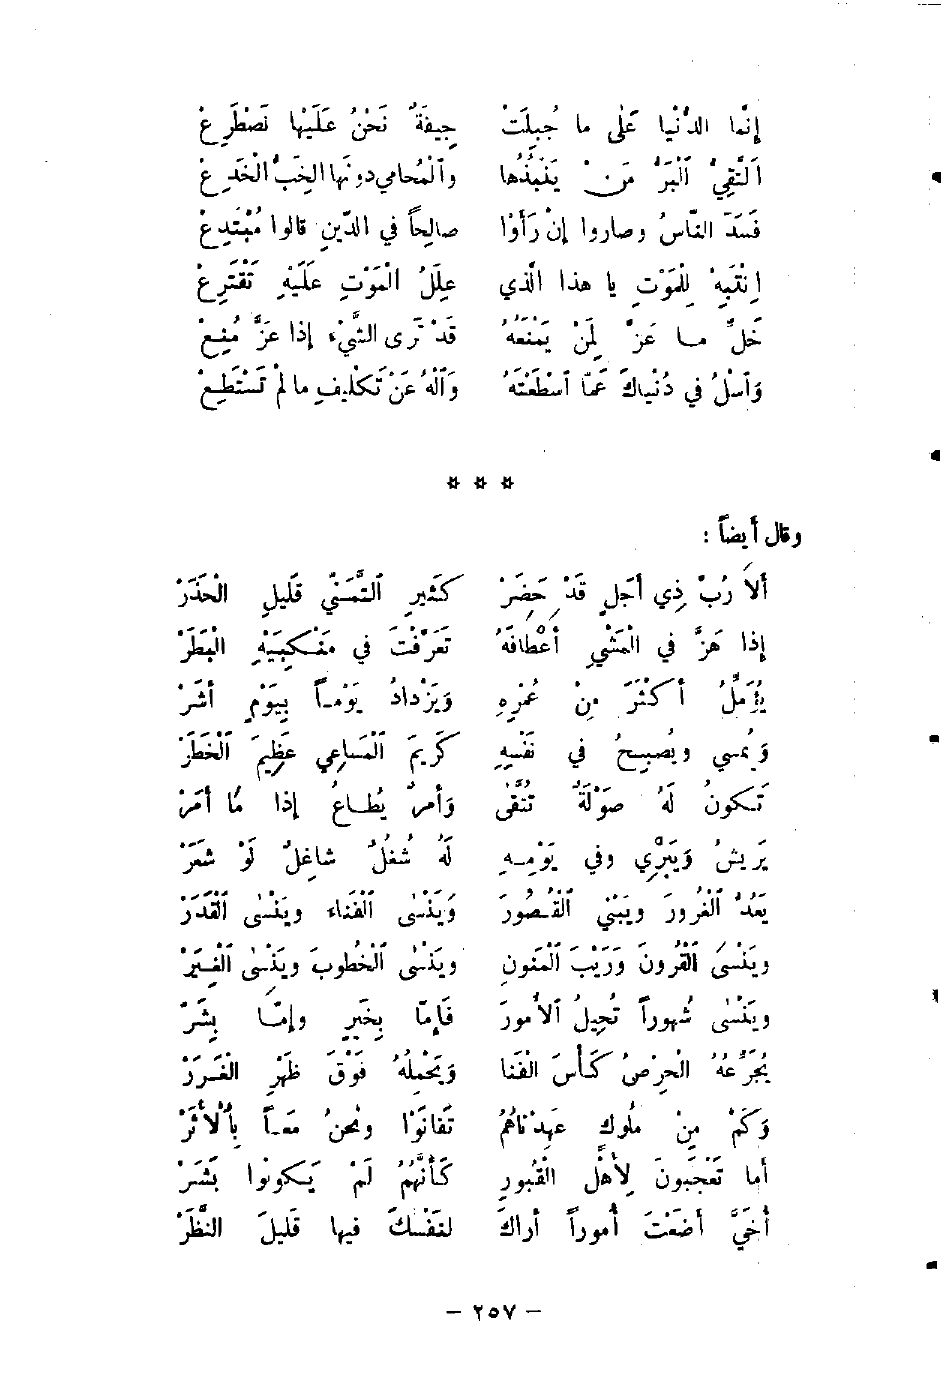 إِنَّما الدُّنْيا عَلَى ما جُبِلَتْ جِيفَةٌ نَحْنُ عَلَيْها نَصْطَرِعْ
اَلتَّقِيُّ اَلْبَرُّ مَنْ يَنْبُذُها وَاَلْمُحامي دونَها الخِبُّ الْخَدِعْ
فَسَدَ النّاسُ وصاروا إِنْ رَأَوْا صالِحاً في الدّينِ قالوا مُبْتَدِعْ
اِنْتَبِهْ لِلْمَوْتِ يا هذا الَّذي عِلَلُ الْمَوْتِ عَلَيْهِ تَقْتَرِعْ
خَلِّ مـا عَزَّ لِمَنْ يَمْنَعُهُ قَدْ تَرى الشَّيْءَ إِذا عَزَّ مُنِعْ
وَاَسْلُ في دُنْياكَ عَمّا اَسْطَعْتَهُ وَاَلْهُ عَنْ تَكْليفِ ما لَمْ تَسْتَطِعْ
* * *
وقال أيضاً :
ألا رُبَّ ذي أَجَلٍ قَدْ حَضَرْ كَثيرِ اَلتَّمَنّي قَليلِ الْحَذَرْ
إِذا هَزَّ في الْمَشْيِ أَعْطافَهُ تَعَرَّفْتَ في مَنْكِبَيْهِ الْبَطَرْ
يُؤَمِّلُ أَكْثَرَ مِنْ عُمْرِهِ وَيَزْدادُ يَوْمـاً بِيَوْمٍ أَشَرْ
وَيُمْسي ويُصْبِحُ في نَفْسِهِ كَريمَ اَلْمَساعي عَظِيمَ اَلْخَطَرْ
تَكونُ لَهُ صَوْلَةٌ تُتَّقَى وَأَمرٌ يُطـاعُ إذا مَا أَمَرْ
يَريشُ وَيَبْري وفي يَوْمِـهِ لَهُ شُغُلٌ شاغِلٌ لَوْ شَعَرْ
يَعُدُّ اَلْغُرورَ ويَبْني اَلْقُصورَ وَيَنْسَى اَلْفَناءَ ويَنْسَى اَلْقَدَرْ
ويَنْسَى اَلْقُرونَ وَرَيْبَ اَلْمَنونِ ويَنْسَى اَلْخُطوبَ ويَنْسَى اَلْغِـيَرْ
ويَنْسَى شُهوراً تُحِيلُ اَلأُمورَ فَإِمّا بِخَيْرٍ وإِمّـا بِشَرّْ
يُجَرِّعُهُ الْحِرْصُ كَـأْسَ الْفَنا وَيَحْمِلُهُ فَوْقَ ظَهْرِ الْغَـرَرْ
وَكَمْ مِنْ مُلوكٍ عَهِدْناهُمُ تَفانَوْا ونَحْنُ مَعـاً بِاَلأَثَرْ
أما تَعْجَبونَ لِأَهْلِ الْقُبورِ كَأَنَّهُمُ لَمْ يَكونوا بَشَرْ
أُخَيَّ أَضَعْتَ أُموراً أَراكَ لنَفْسِكَ فيها قَليلَ النَّظَرْ
— ٢٥٧ —